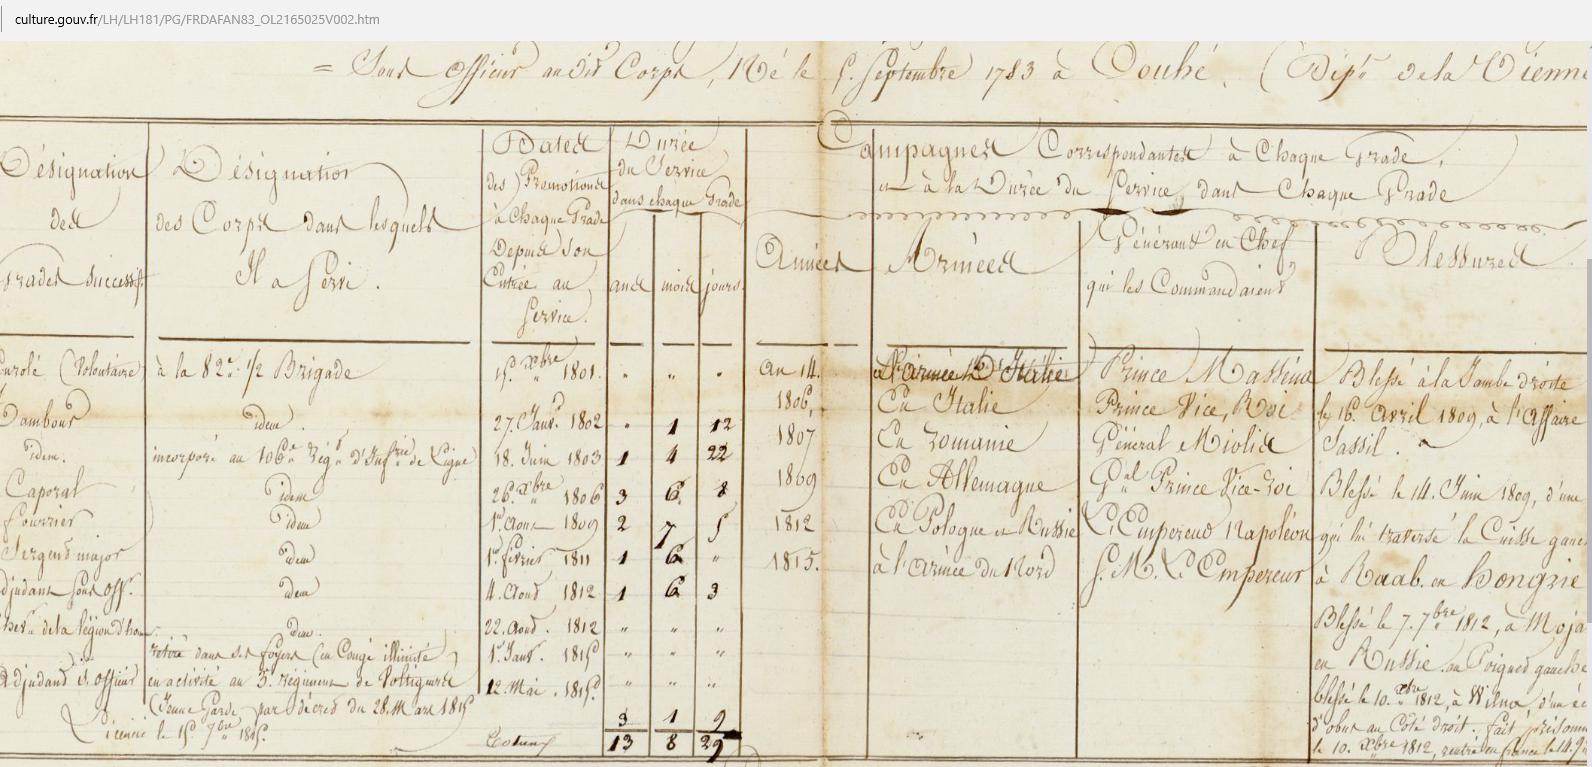 culture.gouv.fr/LH/LH181/PG/FRDAFAN83_OL2165025V002.htm
= Sous Officier au dit Corps, Né le 5. Septembre 1783 à Couhé, (Dépt. de la Vienne
Désignation
des
Grades successifs.
Désignation
des Corps dans lesquels
Il a Servi.
Dates
des Promotions
à Chaque Grade
Depuis son
Entrée au
Service.
Durée
du Service
dans chaque Grade
ans mois jours.
Campagnes Correspondantes à Chaque Grade,
et à la Durée du Service dans Chaque Grade
Années
Armées
Généraux en Chef
qui les Commandaient
Blessures
Enrolé (Volontaire) à la 82e. 1/2 Brigade 15. Xbre 1801. " " "
Tambour idem. 27. Janv. 1802 " 1 12
idem. incorporé au 106e. Régt. d'Infrie de Ligne 18. Juin 1803 1 4 22
Caporal idem 26. Xbre 1806 3 6 8
fourrier idem 1er. Aout 1809 2 7 5
Sergent major idem 1er. février 1811 1 6 "
adjudant sous off. idem 4. Aout 1812 1 6 3
de la légion d'hon idem. 22. Aout. 1812 " " "
retiré dans ses foyers (en Congé illimité 1er. Janv. 1815 " " "
Adjudant s. officier en activité au 3. régiment de Voltigeurs 12. Mai. 1815 " " "
(Jeune Garde par décret du 28. Mars 1815
Licencié le 15 7bre 1815. 3 1 9
13 8 29
An 14. à l'armée d'Italie Prince Masséna
1806, En Italie Prince Vice, Roi
1807 En Romanie Général Miolis
1809 En Allemagne Gal Prince Vice-roi
1812 En Pologne et Russie L'Empereur Napoléon
1815. à l'armée du Nord S. M. L'Empereur
Blessé à la Jambe droite
le 16. Avril 1809, à l'Affaire
Sassil.
Blessé le 14. Juin 1809, d'une
qui lui traversé la Cuisse gauc
à Raab. en hongrie
Blessé le 7. 7bre 1812, à Moja
en Russie au Poignet gauche
blessé le 10. Xbre 1812, à Wilna, d'un éc
d'obus au Côté droit. fait prisonn
le 10. Xbre 1812, rentré en france le 14.